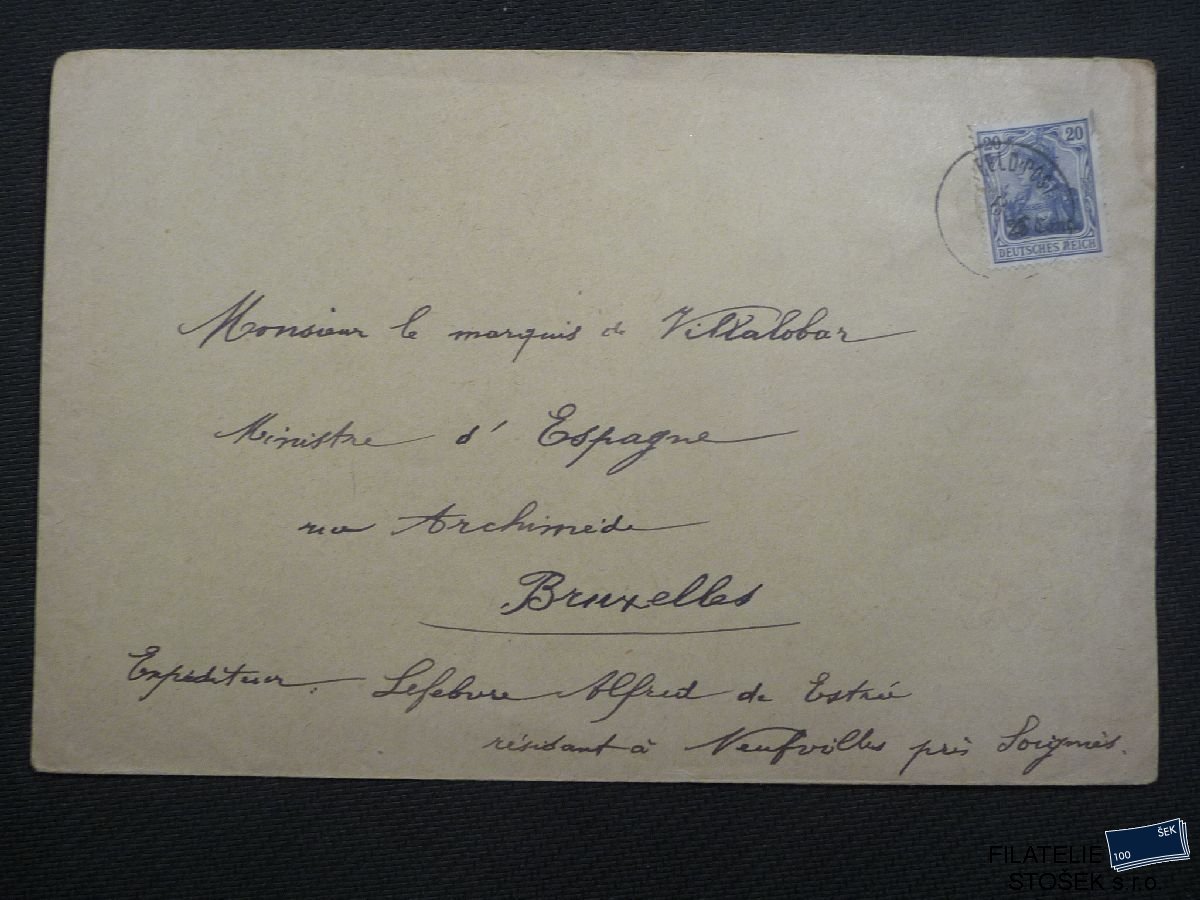 20 20
FELDPOST
25 Cent.
DEUTSCHES REICH
Monsieur le marquis de Villalobar
Ministre d'Espagne
rue Archimède
Bruxelles
Expéditeur. Lefebvre Alfred de Estrée
résidant à Neufvilles près Soignies.
100 ŠEK
FILATELIE
STOŠEK s.r.o.